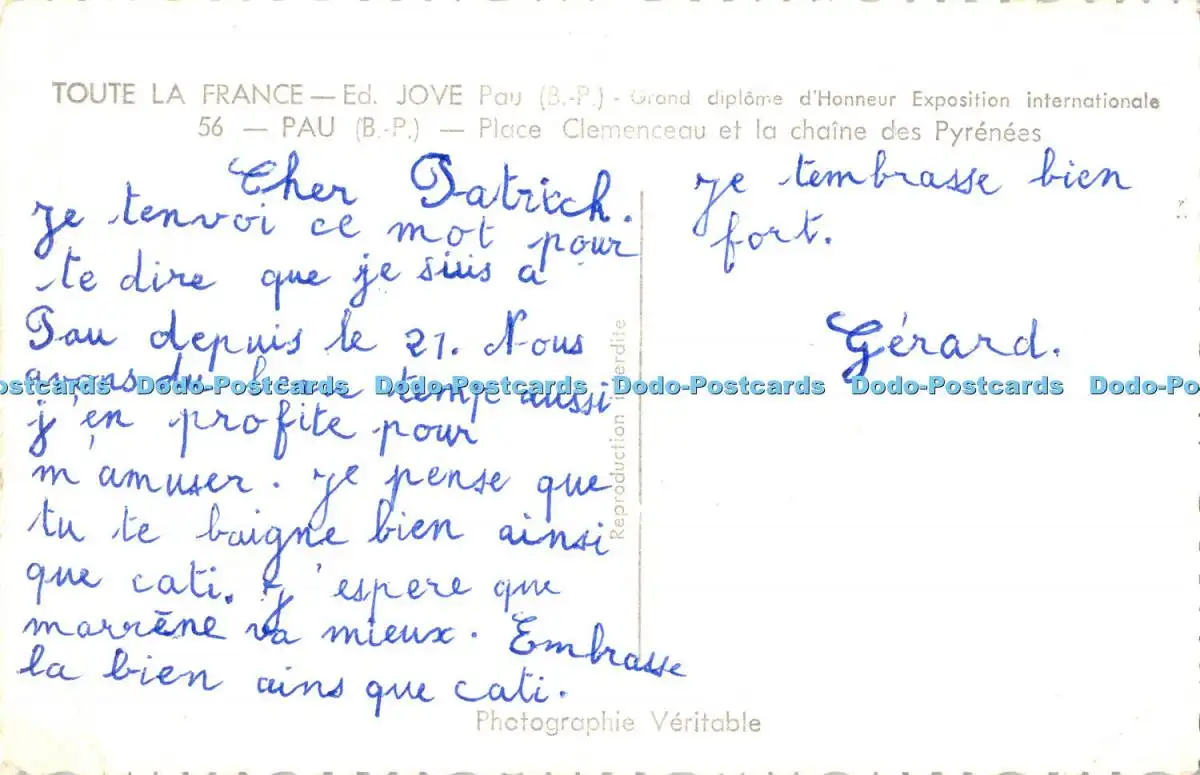 TOUTE LA FRANCE — Ed. JOVE Pau (B.-P.) - Grand diplôme d'Honneur Exposition internationale
56 — PAU (B.-P.) — Place Clemenceau et la chaîne des Pyrénées
Cher Patrick.
je tenvoi ce mot pour
te dire que je suis a
Pau depuis le 21. Nous
avons du beau temp aussi
j'en profite pour
m'amuser. je pense que
tu te baigne bien ainsi
que cati. j'espere que
marrène va mieux. Embrasse
la bien ains que cati.
je tembrasse bien
fort.
Gérard.
Reproduction interdite
Photographie Véritable
Dodo-Postcards Dodo-Postcards Dodo-Postcards Dodo-Postcards Dodo-Postcards